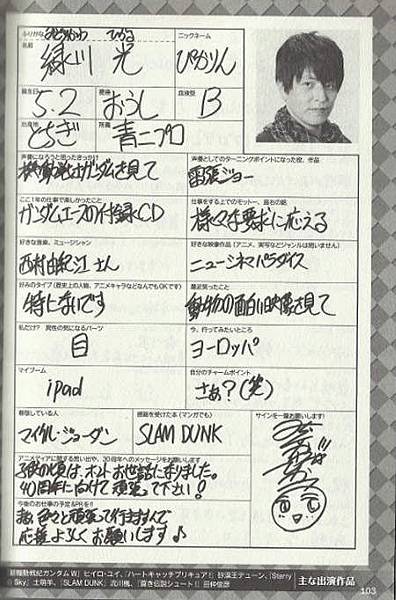 ふりがな みどりかわ ひかる
名前 緑川 光
ニックネーム
ぴかりん
誕生日 5.2
星座 おうし
血液型 B
出身地 とちぎ
所属 青二プロ
声優になろうと思ったきっかけ
機動戦士ガンダムを見て
声優としてのターニングポイントになった役、作品
雷張ジョー
ここ1年の仕事で楽しかったこと
ガンダムエースの付録CD
仕事をする上でのモットー、座右の銘
様々な要求に応える
好きな音楽、ミュージシャン
西村由紀江さん
好きな映像作品(アニメ、実写などジャンルは問いません)
ニューシネマパラダイス
好みのタイプ(歴史上の人物、アニメキャラなどなんでもOKです)
特にないです
最近笑ったこと
動物の面白い映像を見て
私だけ? 異性の気になるパーツ
目
今、行ってみたいところ
ヨーロッパ
マイブーム
ipad
自分のチャームポイント
さぁ?(笑)
尊敬している人
マイケル・ジョーダン
感銘を受けた本(マンガでも)
SLAM DUNK
サインを一筆お願いします!
アニメディアに関する思い出や、30周年へのメッセージをお願いします
子供の頃は、ホントお世話になりました。
40周年に向けて頑張って下さい!
今後のお仕事の予定&PRを!!
まぁ、色々と頑張って行きますんで
応援よろしくお願いします♪
「新機動戦記ガンダムW」ヒイロ・ユイ、「ハートキャッチプリキュア!」砂漠王デューン、「Starry
Sky」土萌羊、「SLAM DUNK」流川楓、「蒼き伝説シュート!」田仲俊彦
主な出演作品
103